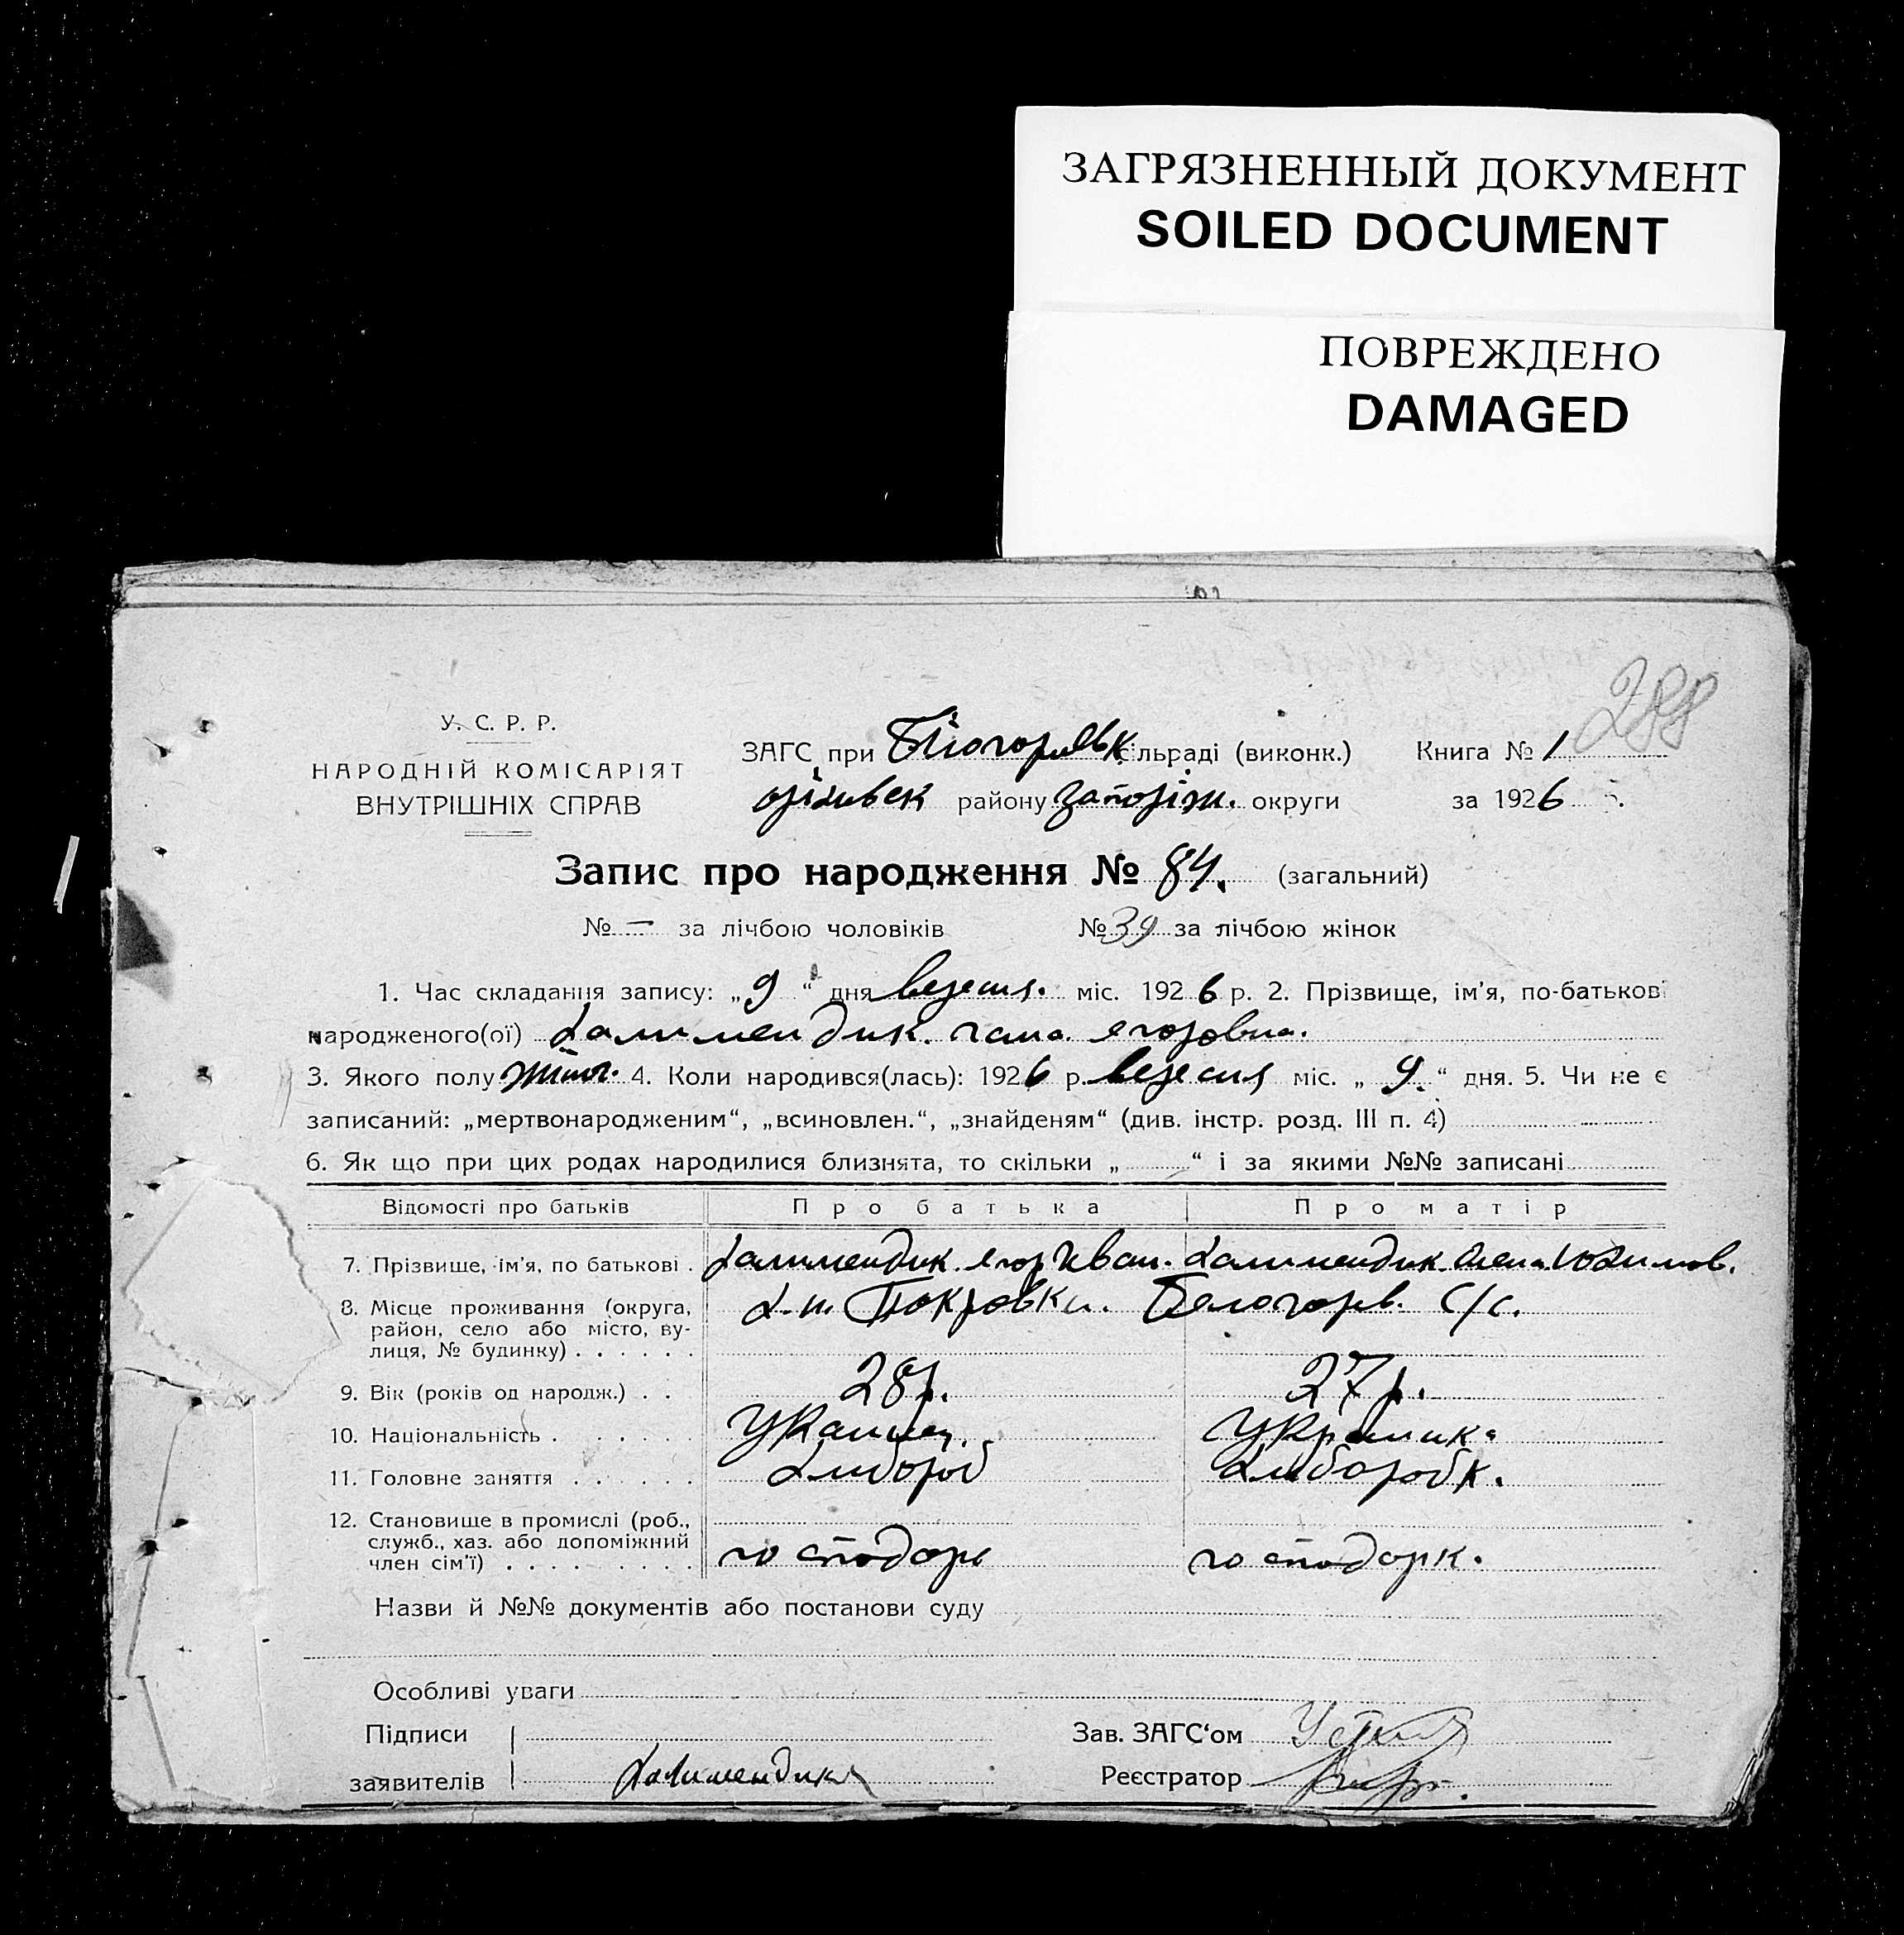 ЗАГРЯЗНЕННЫЙ ДОКУМЕНТ
SOILED DOCUMENT
ПОВРЕЖДЕНО
DAMAGED
288
У. С. Р. Р.
НАРОДНІЙ КОМІСАРІЯТ
ВНУТРІШНІХ СПРАВ
ЗАГС при сільраді (виконк.) Книга № 1
району Запоріж. округи за 1926
Запис про народження № 84. (загальний)
№ — за лічбою чоловіків № 39 за лічбою жінок
1. Час складання запису: „9“ дня вересня. міс. 1926 р. 2. Прізвище, ім'я, по-батькові
народженого(ої) Халимендик. ягоровна.
3. Якого полу жіноч. 4. Коли народився(лась): 1926 р. вересня міс. „9.“ дня. 5. Чи не є
записаний: „мертвонародженим“, „всиновлен.“, „знайденям“ (див. інстр. розд. III п. 4)
6. Як що при цих родах народилися близнята, то скільки „ “ і за якими №№ записані
Відомості про батьків Про батька Про матір
7. Прізвище, ім'я, по батькові . Халимендик. ягор Иван. Халимендик
8. Місце проживання (округа, х. н. Покровка. Белогорів. С/с.
район, село або місто, ву-
лиця, № будинку) . . . . . .
9. Вік (років од народж.) . . 28р. 27р.
10. Національність . . . . . . Украинец. Украинка
11. Головне заняття . . . . . . Хлибороб Хлиборобк.
12. Становище в промислі (роб.,
служб., хаз. або допоміжний
член сім'ї) . . . . . . . . господарь господарк.
Назви й №№ документів або постанови суду
Особливі уваги
Підписи Зав. ЗАГС'ом
заявителів Халимендик Реєстратор